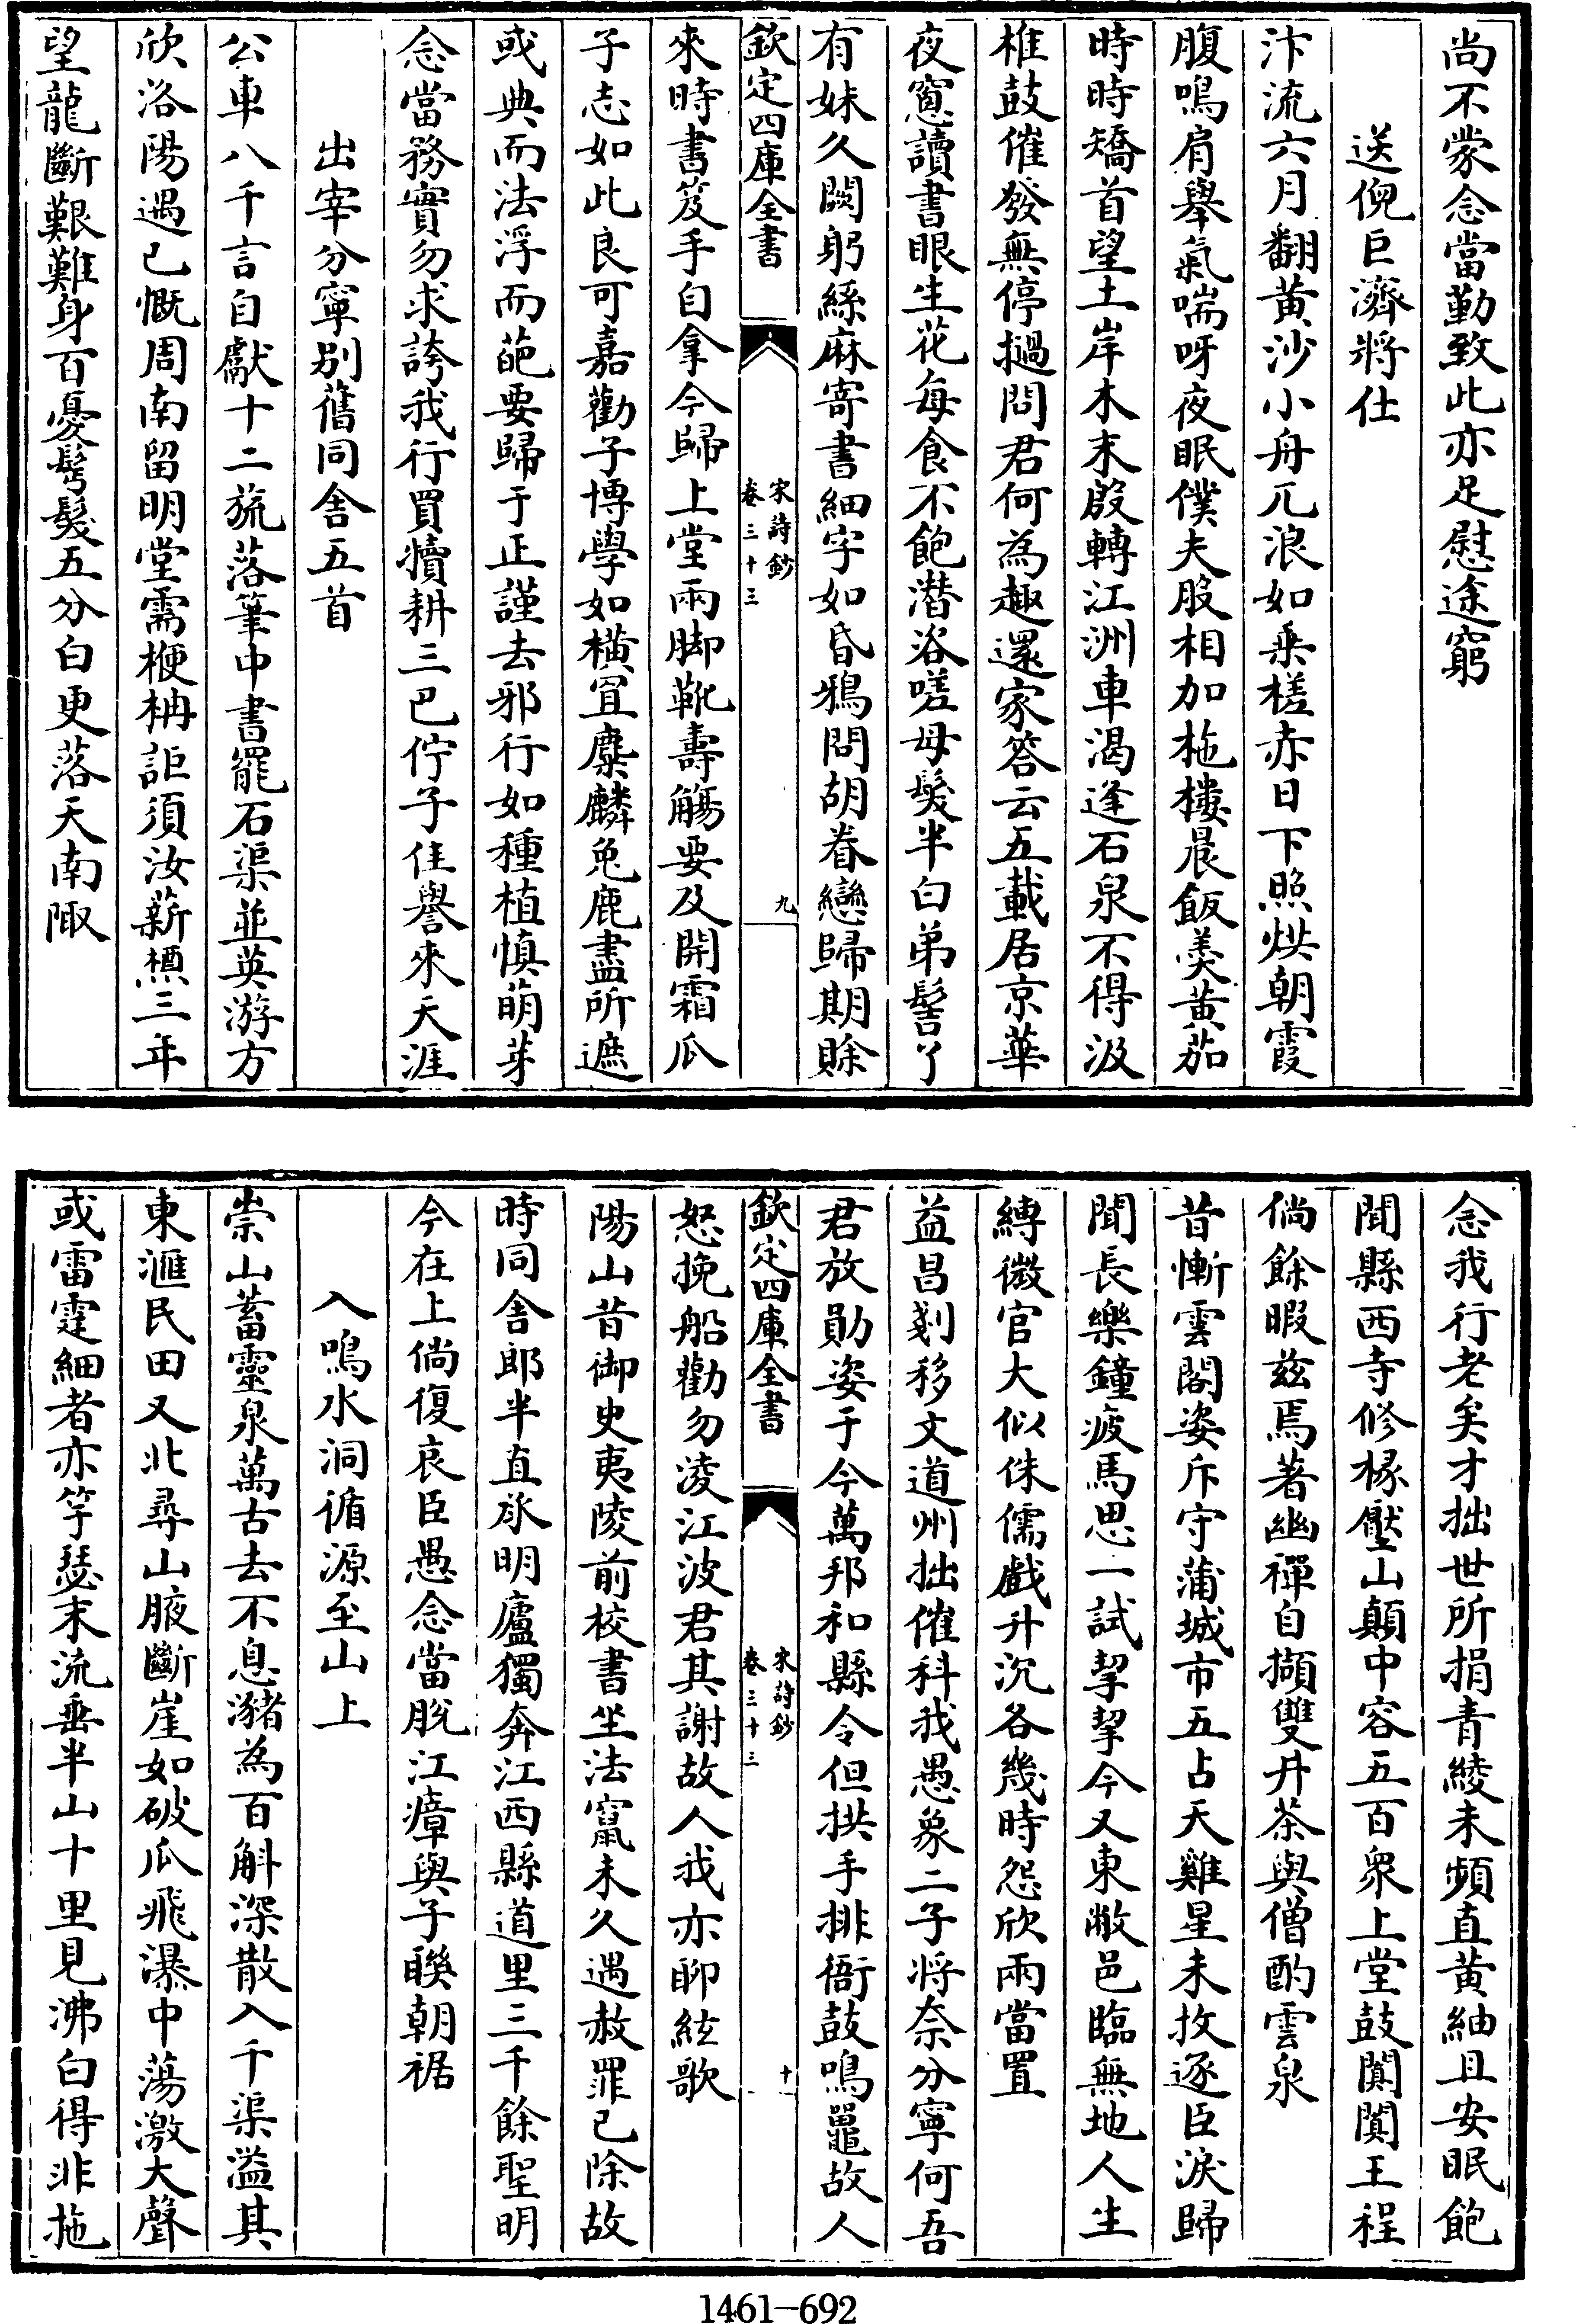 尚不蒙念當勤致此亦足慰途窮
送倪巨濟將仕
汴流六月翻黃沙小舟兀浪如乗槎赤日下照烘朝霞
腹鳴肩舉氣喘呀夜眠僕夫股相加柂樓晨飯羮黃茄
時時矯首望土岸木末殷轉江洲車渴逢石泉不得汲
椎鼓催發無停撾問君何為趣還家答云五載居京華
夜窻讀書眼生花每食不飽潜浴嗟母髮半白弟髻丫
有妹久闕躬絲麻寄書細字如昏鴉問胡眷戀歸期賖
欽定四庫全書
宋詩鈔
卷三十三
九
來時書笈手自拿今歸上堂兩脚靴壽觴要及開霜瓜
子志如此良可嘉勸子博學如橫罝麋麟兔鹿盡所遮
或典而法浮而葩要歸于正謹去邪行如種植慎萌芽
念當務實勿求誇我行買犢耕三巴佇子佳譽來天涯
出宰分寧别舊同舍五首
公車八千言自獻十二旒落筆中書罷石渠並英游方
欣洛陽遇已慨周南留明堂需楩柟詎須汝薪槱三年
望龍斷艱難身百憂髩髮五分白更落天南陬
念我行老矣才拙世所捐青綾未頻直黃紬且安眠飽
聞縣西寺修椽壓山顛中容五百衆上堂鼓闐闐王程
倘餘暇兹焉著幽禪自擷雙井茶與僧酌雲泉
昔慚雲閣姿斥守蒲城市五占天雞星未放逐臣淚歸
聞長樂鐘疲馬思一試挈挈今又東敝邑臨無地人生
縛微官大似侏儒戲升沉各幾時怨欣兩當置
益昌剗移文道州拙催科我愚象二子將奈分寧何吾
君放勛姿于今萬邦和縣令但拱手排衙鼓鳴鼉故人
欽定四庫全書
宋詩鈔
卷三十三
十
怒挽船勸勿凌江波君其謝故人我亦聊絃歌
陽山昔御史夷陵前校書坐法竄未久遇赦罪已除故
時同舍郎半直承明廬獨奔江西縣道里三千餘聖明
今在上倘復哀臣愚念當脫江瘴與子聨朝裾
入鳴水洞循源至山上
崇山蓄靈泉萬古去不息瀦為百斛深散入千渠溢其
東滙民田又北尋山腋斷崖如破瓜飛瀑中蕩激大聲
或雷霆細者亦竽瑟末流垂半山十里見沸白得非拖
1461—692